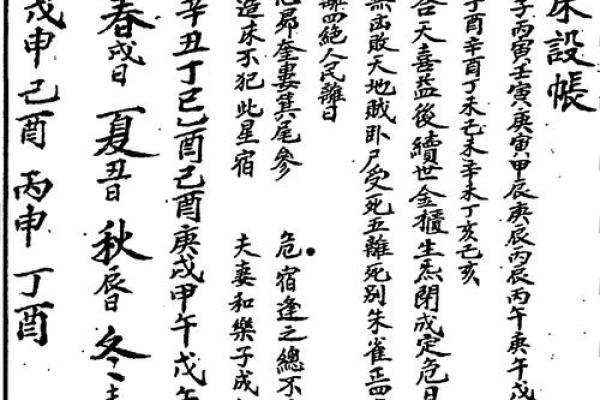 床設帳
子丙寅壬寅庚寅甲辰庚辰丙辰丙午庚午戊
酉辛酉丁未己未辛未丁亥乙亥
合天喜益後續世金櫃生炁閉成定危日
敗天地賊卧尸受死五離死別朱雀正四
離四絕人民離日
昴奎婁箕尾參 危宿逢之總不
造床不犯此星宿 夫妻和樂子成
辛丑丁巳乙酉己酉庚戌甲午戊午
春戌日 夏丑日 秋辰日 冬
戊申 己酉 丙申 丁酉